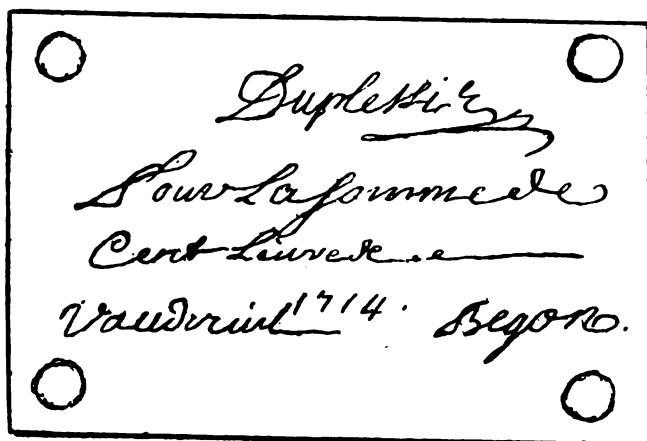 Duplessis
Pour La somme de
Cent Livres
Vaudreuil 1714. Begon.